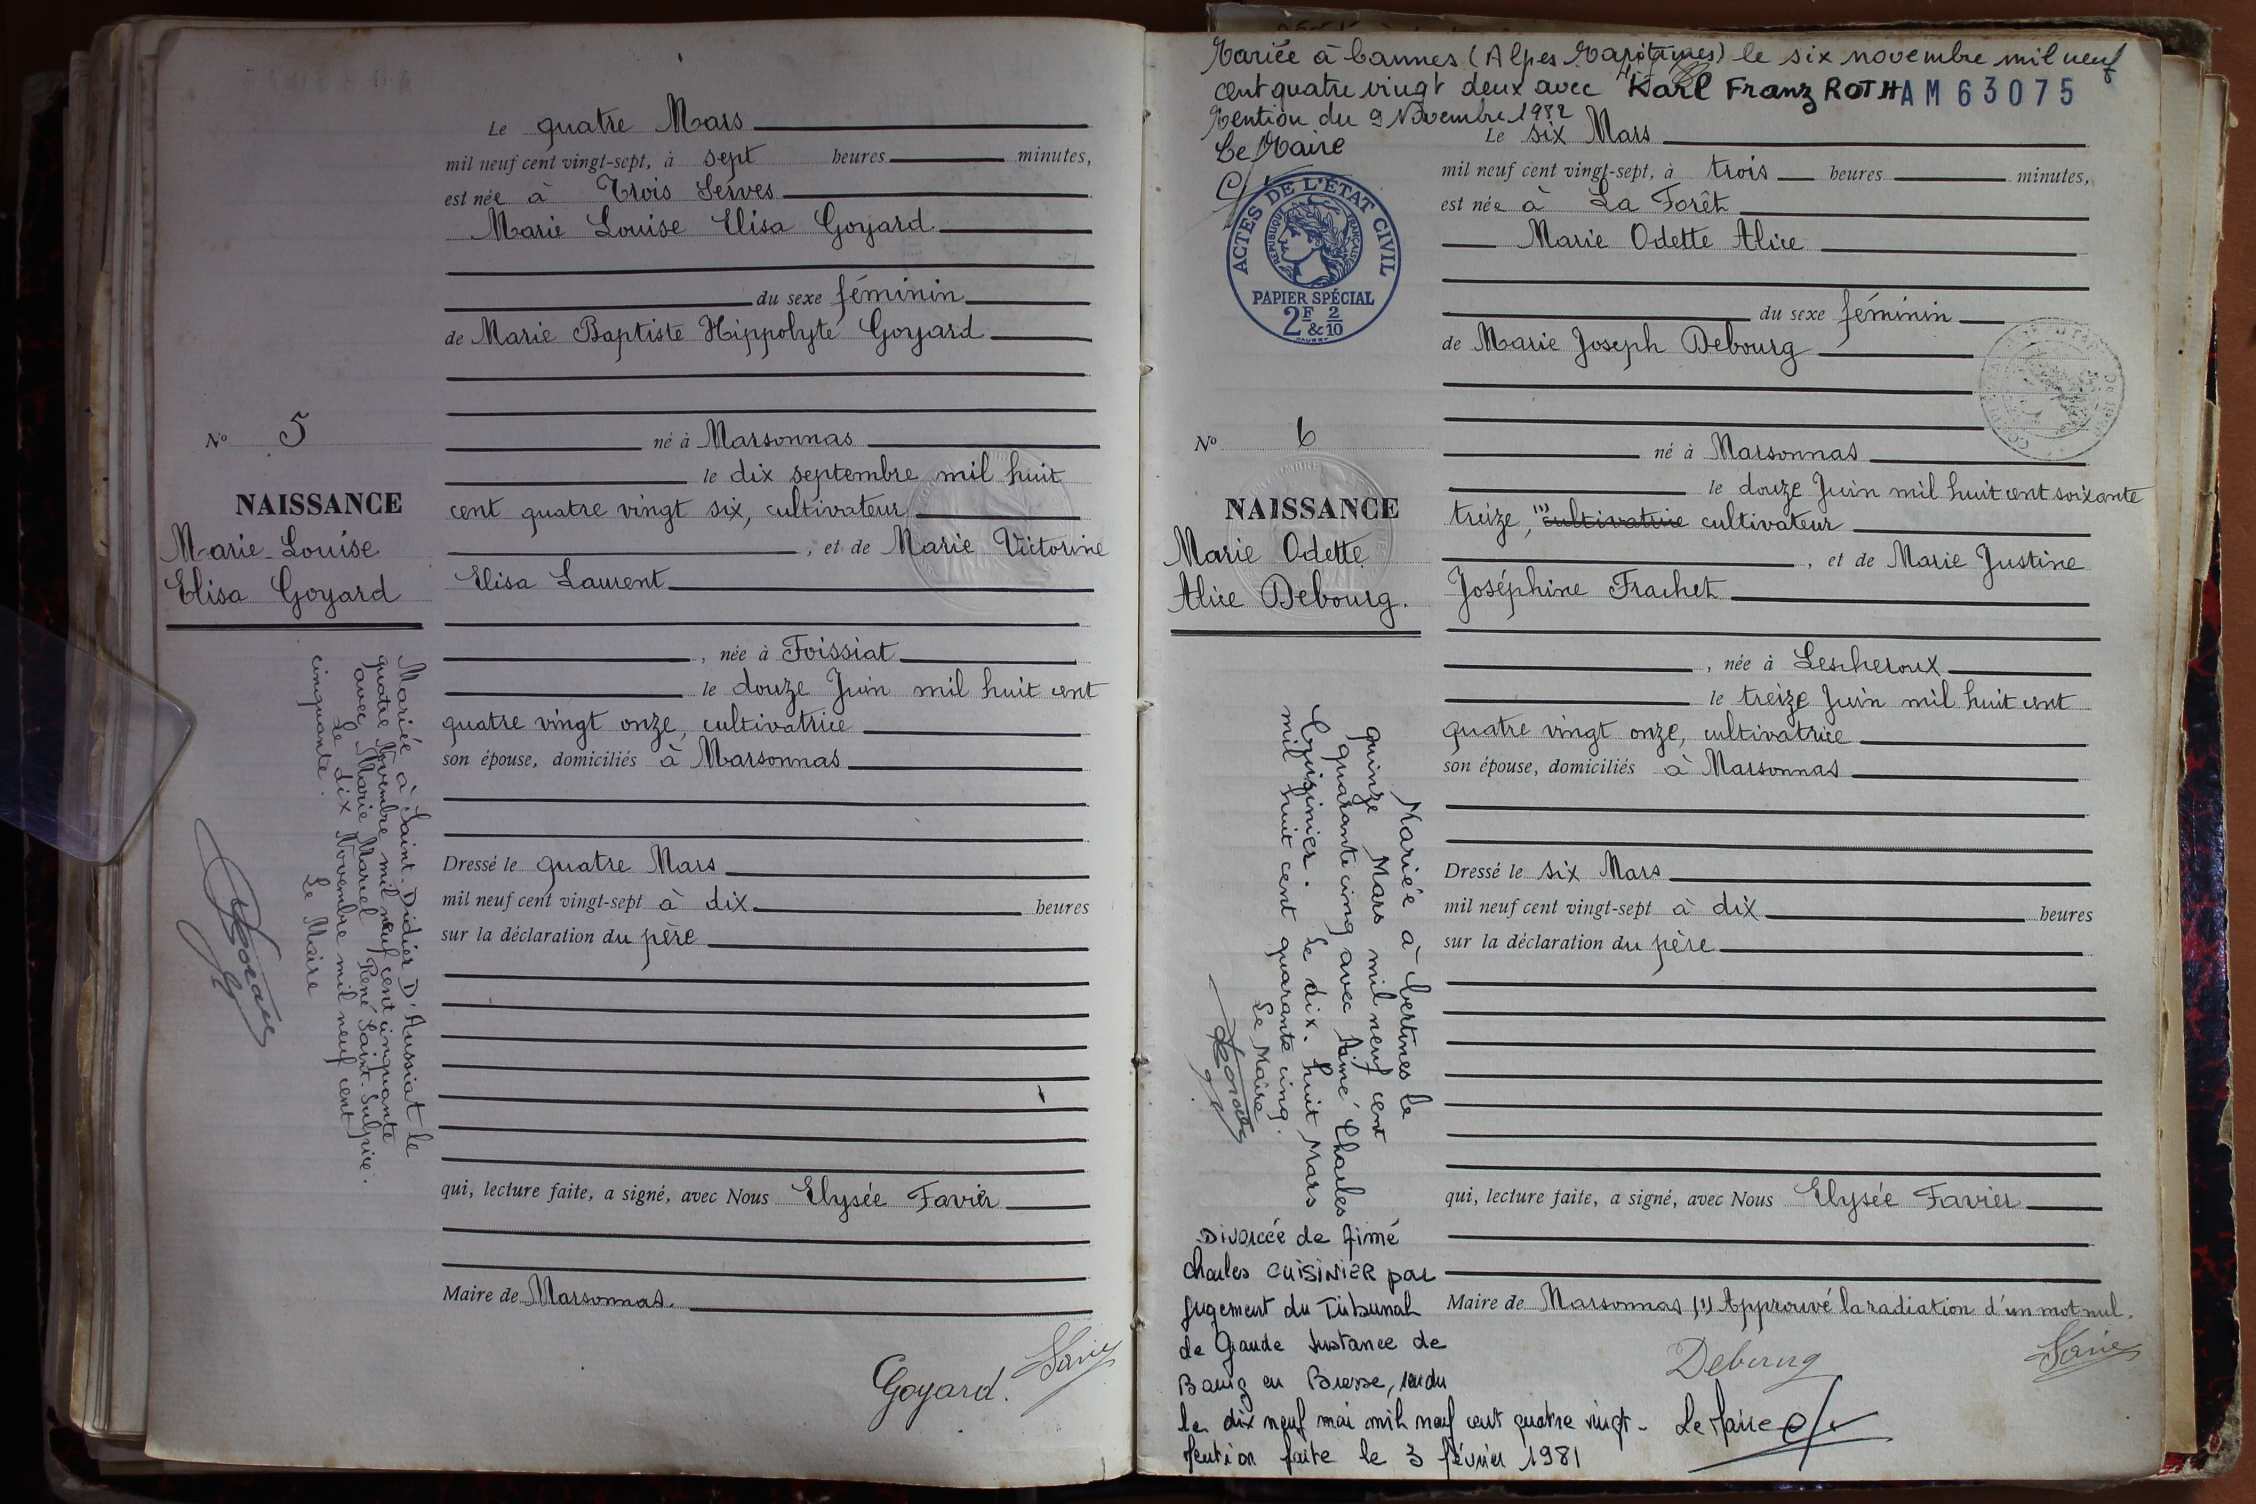 Le quatre Mars
mil neuf cent vingt-sept, à sept heures minutes,
est née à Trois Serves
Marie Louise Elisa Goyard
du sexe féminin
de Marie Baptiste Hippolyte Goyard
né à Marsonnas
le dix septembre mil huit
cent quatre vingt six, cultivateur
, et de Marie Victorine
Elisa Laurent
, née à Foissiat
le douze Juin mil huit cent
quatre vingt onze, cultivatrice
son épouse, domiciliés à Marsonnas
Dressé le quatre Mars
mil neuf cent vingt-sept à dix heures
sur la déclaration du père
qui, lecture faite, a signé, avec Nous Elysée Favier
Maire de Marsonnas.
Goyard.
No 5
NAISSANCE
Marie-Louise
Elisa Goyard
Mariée à Saint-Didier D'Aussiat le
quatre Novembre mil neuf cent cinquante
avec Marie Marcel René Saint-Sulpice.
Le dix Novembre mil neuf cent
cinquante. Le Maire
Mariée à Cannes (Alpes Maritimes) le six novembre mil neuf
cent quatre vingt deux avec Karl Franz ROTH
AM 63075
Mention du 9 Novembre 1982
Le Maire
ACTES DE L'ÉTAT CIVIL
RÉPUBLIQUE FRANÇAISE
PAPIER SPÉCIAL
2F & 2/10
Le six Mars
mil neuf cent vingt-sept, à trois heures minutes,
est née à La Forêt
Marie Odette Alice
du sexe féminin
de Marie Joseph Debourg
né à Marsonnas
le douze Juin mil huit cent soixante
treize, (1) cultivatrice cultivateur
, et de Marie Justine
Joséphine Frachet
, née à Lescheroux
le treize Juin mil huit cent
quatre vingt onze, cultivatrice
son épouse, domiciliés à Marsonnas
Dressé le six Mars
mil neuf cent vingt-sept à dix heures
sur la déclaration du père
qui, lecture faite, a signé, avec Nous Elysée Favier
Maire de Marsonnas (1) Approuvé la radiation d'un mot nul.
Debourg
No 6
NAISSANCE
Marie Odette
Alice Debourg.
Mariée à Certines le
quinze Mars mil neuf cent
quarante cinq avec Aimé Charles
Cuisinier. Le dix-huit Mars
mil huit cent quarante cinq.
Le Maire
Divorcée de Aimé
Charles CUISINIER par
jugement du Tribunal
de Grande Instance de
Bourg en Bresse, rendu
le dix neuf mai mil neuf cent quatre vingt- Le Maire
Mention faite le 3 février 1981